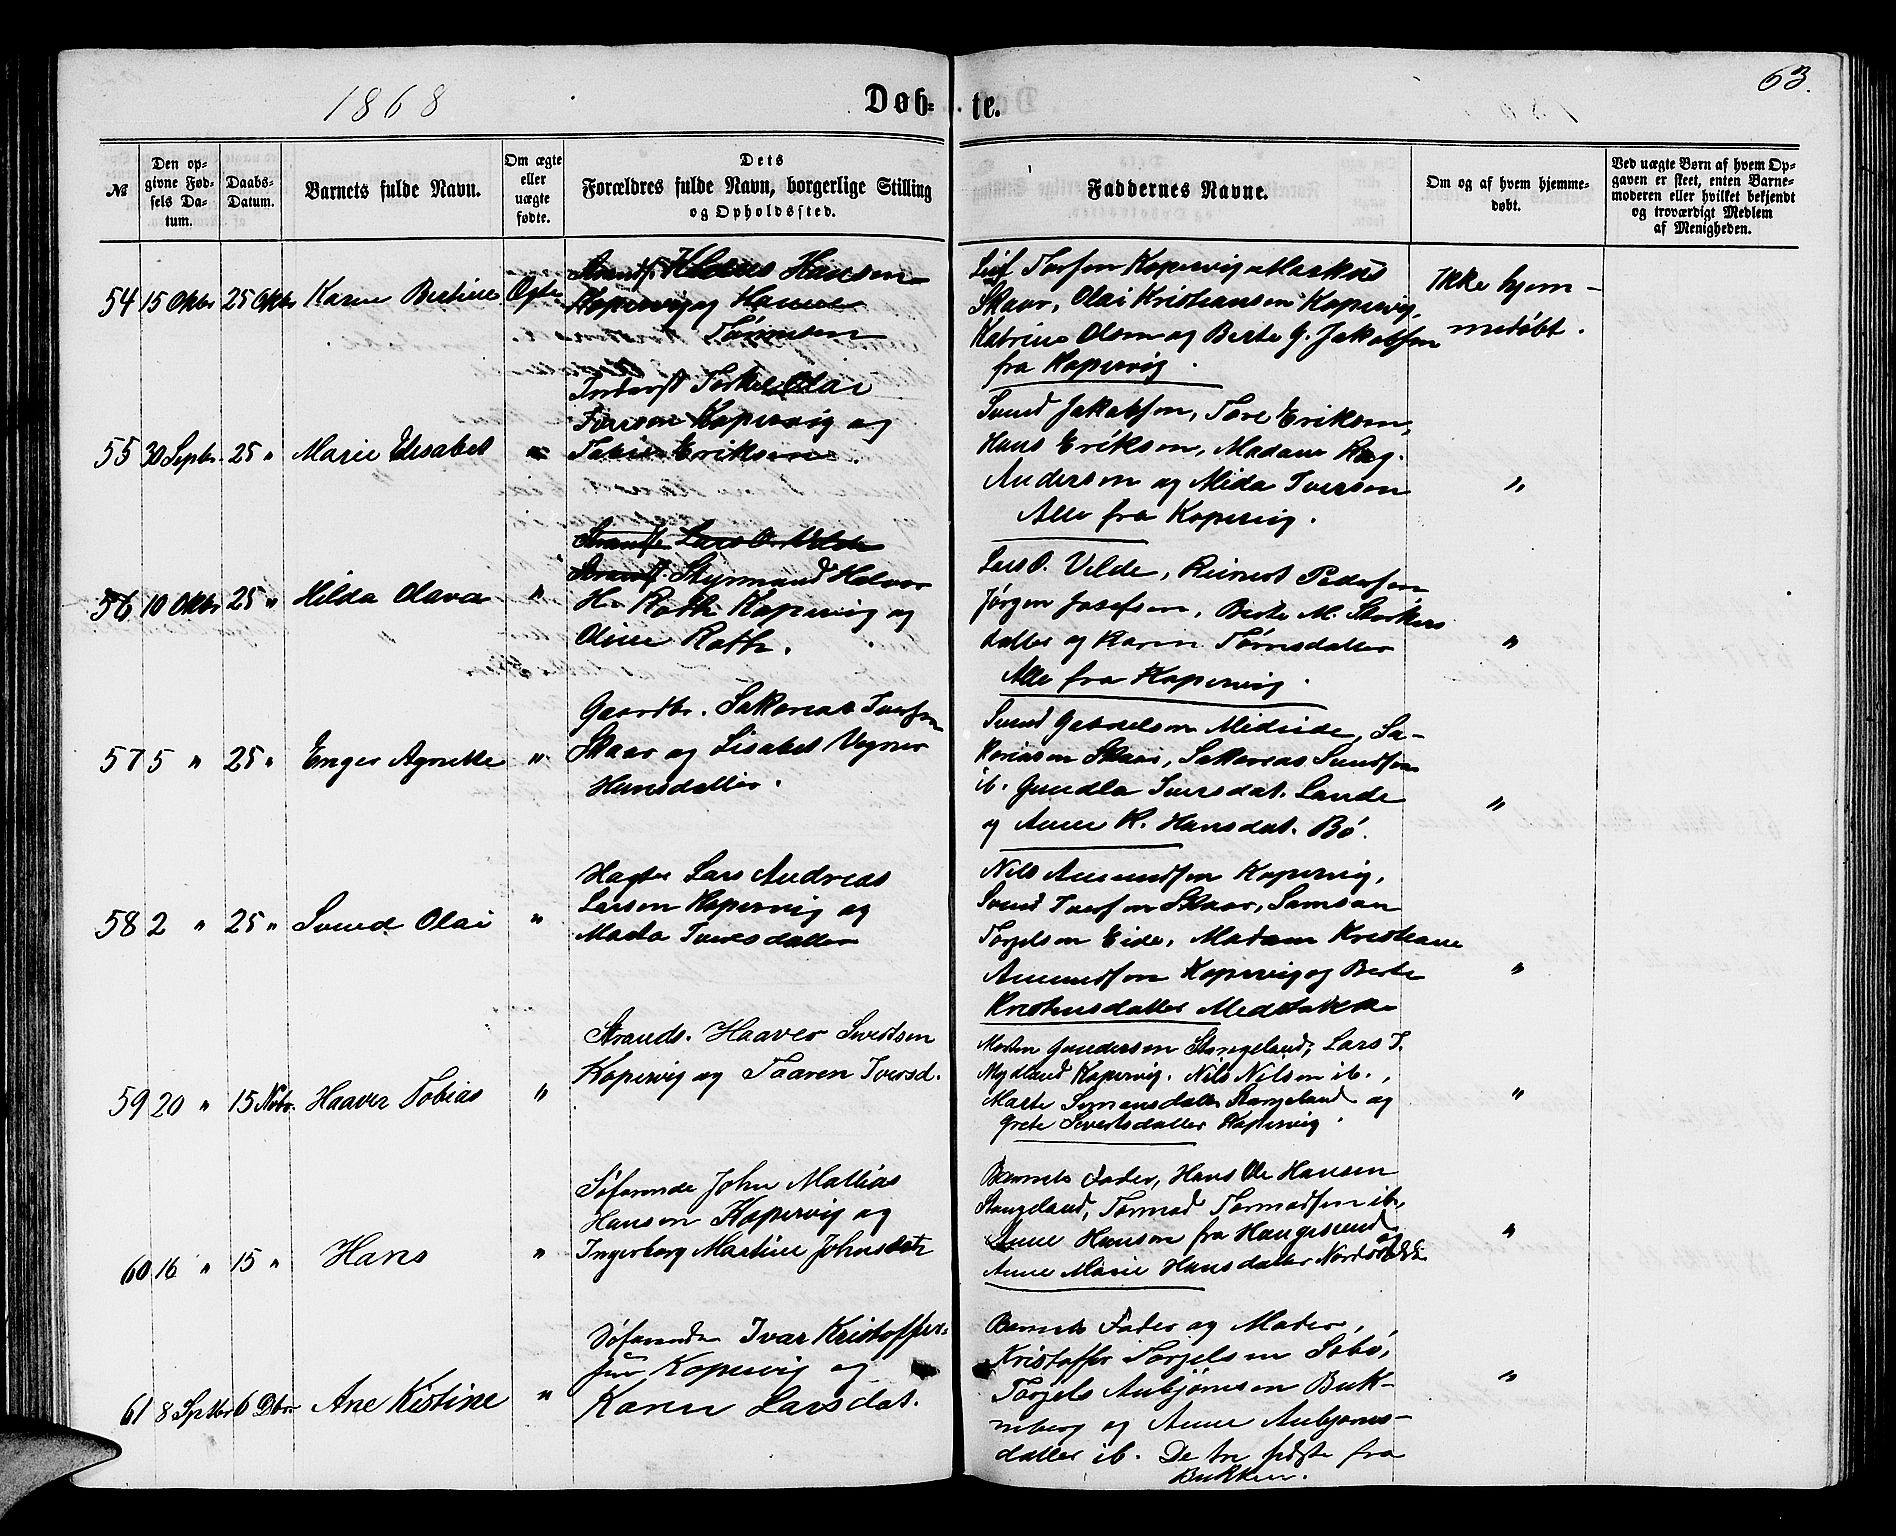 1868
Døb-
te.
63.
№
Den op-
givne Fød-
sels Da-
tum.
Daabs-
Datum.
Barnets fulde Navn.
Om ægte
eller
uægte
fødte.
Dets
Forældres fulde Navn, borgerlige Stilling
og Opholdssted.
Faddernes Navne.
Om og af hvem hjemme-
døbt.
Ved uægte Børn af hvem Op-
gaven er skeet, enten Barne-
moderen eller hvilket bekjendt
og troværdigt Medlem
af Menigheden.
54 15 Oktbr 25 Oktbr Karen Bertine Ægte
Strands. Hans Hansen
Kopervig og Hanne
Tønnesen
Leif Torsen Kopervig Markus
Skaar, Olai Kristiansen Kopervig,
Katrine Olsen og Berte G. Jakobsen
fra Kopervig.
Ikke hjem-
medøbt.
55 30 Septbr. 25 " Marie Elisabet "
Torkel Olai
Iversen Kopervig og
Tabine Eriksen.
Svend Jakobsen, Tore Eriksen,
Hans Eriksen, Madame Rag.
Anderson og Mida Iverson
Alle fra Kopervig.
"
56 10 Oktbr 25 " Hilda Olava "
Lars O. Velde
Strands. Styrmand Halvor
H. Roth Kopervig og
Oline Roth.
Lars O. Velde, Reinert Pedersen
Jørgen Josefsen, Berte M. Storkers
datter og Karen Tørresdatter
Alle fra Kopervig.
"
57 5 " 25 " Enger Agnette "
Gaardbr. Sakarias Iversen
Skaar og Lisabet Vegner
Hansdatter.
Svend Gabrielsen Mideide, Sa-
kariasen Skaar, Sakarias Svendsen
ib. Gundla Iversdat. Lande
og Anne K. Hansdat. Bø.
"
58 2 " 25 " Svend Olai "
Lars Andreas
Larsen Kopervig og
Marta Iversdatter
Nils Amundsen Kopervig,
Svend Iversen Skaar, Samson
Torjelsen Eide, Madam Kristiane
Amundsen Kopervig og Berte
Kristensdatter Medstokke
"
59 20 " 15 Novbr. Haaver Tobias "
Strands. Haaver Sivertsen
Kopervig og Taaren Iversd.
Morten Gundersen Stangeland, Lars T.
Mydland Kopervig. Nils Nilsen ib.,
Marte Simonsdatter Stangeland og
Grete Sivertsdatter Kopervig.
"
60 16 " 15 " Hans "
Søfarende John Mathias
Hansen Kopervig og
Ingerborg Martine Johnsdatr
Barnets Fader, Hans Ole Hansen
Stangeland, Tormod Tormodsen ib,
Anne Hansen fra Haugesund og
Anne Marie Hansdatter Nordstokke
"
61 8 Septbr 6 Dbr. Ane Kistine "
Søfarende Ivar Kristoffer-
sen Kopervig og
Karen Larsdat.
Barnets Fader og Moder,
Kristoffer Torjelsen Sebø,
Torjels Anbjørnsen Buk-
neberg og Anne Anbjørns-
datter ib. De tre sidste fra
Bukken.
"